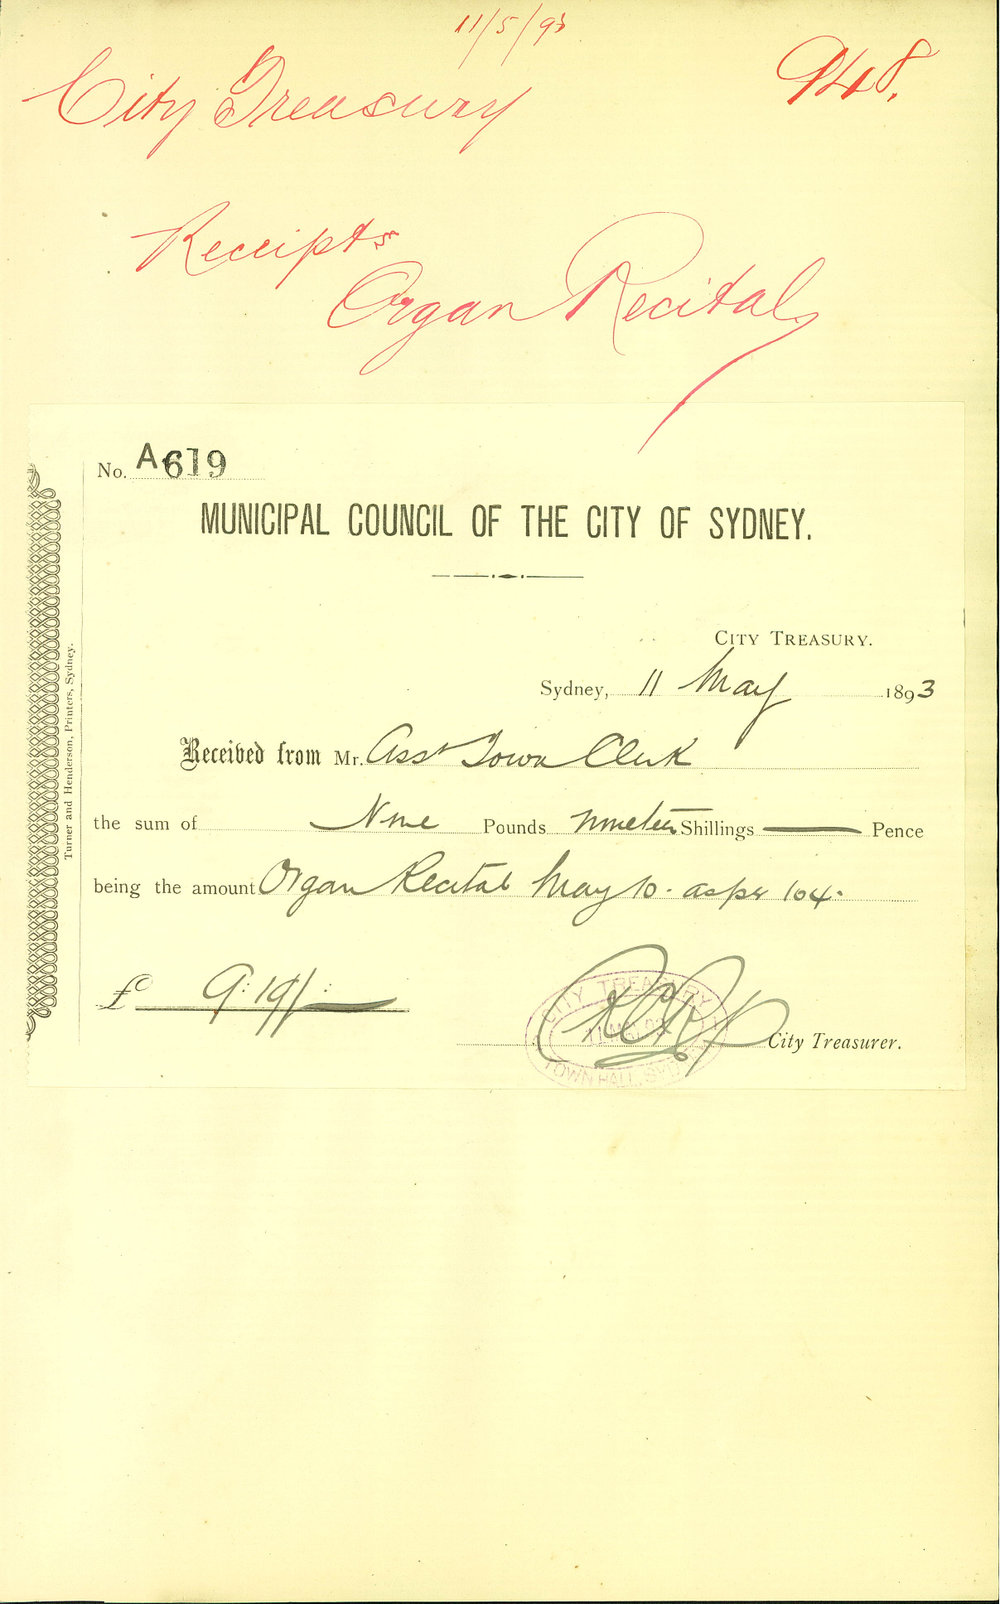 11/5/93
City Treasury
948.
Receipts
Organ Recital
No. A619
MUNICIPAL COUNCIL OF THE CITY OF SYDNEY.
CITY TREASURY.
Sydney, 11 May 1893
Received from Mr. Asst Town Clerk
the sum of Nine Pounds nineteen Shillings — Pence
being the amount Organ Recital May 10. as per 104.
£ 9:19/:
CITY TREASURY
TOWN HALL, SYDNEY
City Treasurer.
Turner and Henderson, Printers, Sydney.